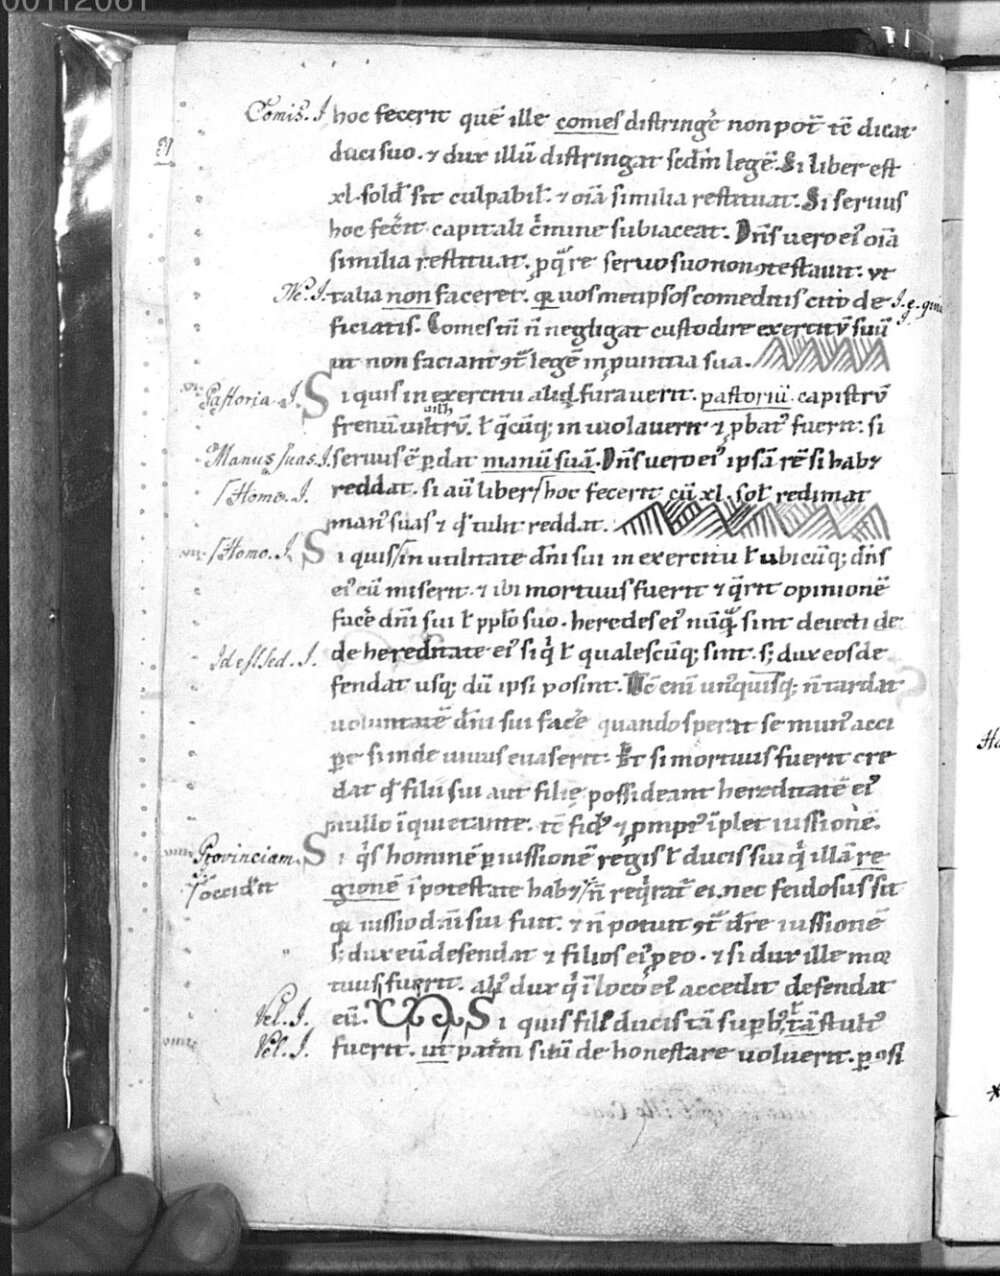 00112061
Comis. I. hoc fecerit quē ille comes distringe᷒ non pot̄ tē dicat
duci suo. ⁊ dux illū distringat scdm̄ legē. Si liber est
xl. sold̄ sit culpabil᷒. ⁊ oīa similia restituat. Si seruus
hoc fec̄it capitali c̓mine subiaceat. Dn̄s uero ei᷒ oīa
similia restituat. p q̓ re seruo suo non ꝯtestauit. ut
N. I. talia non faceret. q̄ uosmetipsos comeditis cito de I. e. qui
ficiatis. Comes tn̄ n̄ negligat custodire exercitū suū
ut non faciant ꝯt̄ legē in puintia sua.
Pastoria. I. Si quis in exercitu aliqd̄ furauerit. pastoriū. capistrū
frenū uiltrū. ł q̄cūq; inuolauerit ⁊ ꝓbat᷒ fuerit. si
Manus suas. I. seruus ē ꝑdat manū suā. Dn̄s uero ei᷒ ipsā rē si hab&
/Homo. I. reddat. si aū liber/hoc fecerit cū xl. sol̄ redimat
man᷒ suas ⁊ qd̄ tulit reddat.
/Homo. I. Si quis/in utilitate dn̄i sui in exercitu ł ubicūq; dn̄s
ei᷒ eū miserit. ⁊ ibi mortuus fuerit ⁊ q̄rit opinionē
facē dn̄i sui ł pplo suo. heredes ei᷒ nūq̄ sint deiecti de
Id est sed. I. de hereditate ei᷒ siq̓ ł qualescūq; sint. s; dux eos de
fendat usq; dū ipsi posint. Tē eni unusquisq; n̄ tardat
uoluntatē dn̄i sui facē quando sperat se mun᷒ acci
pe si inde uiuus euaserit. Et si mortuus fuerit cre
dat qd̄ filii sui aut filie possideant hereditatē ei᷒
nullo īquietante. tē fid ⁊ ꝓmpt᷒ īplet iussionē.
Provinciam. Si q̓s hominē ꝑ iussionē regis ł ducis sui q̓ illā re
/occidit gionē ī potestate hab&/n̄ req̓rat᷒ ei. nec feidosus sit
q̄ iussio dn̄i sui fuit. ⁊ n̄ potuit ꝯt̄ dr̄e iussionē
s; dux eū defendat ⁊ filios ei᷒ p eo. ⁊ si dux ille mor
tuus fuerit. ali᷒ dux q̓ ī loco ei᷒ accedit defendat
Vel. I. eū. Si quis fili᷒ ducis tā supb᷒, tā stult᷒
Vel. I. fuerit. ut patrm suū dehonestare uoluerit. p osi